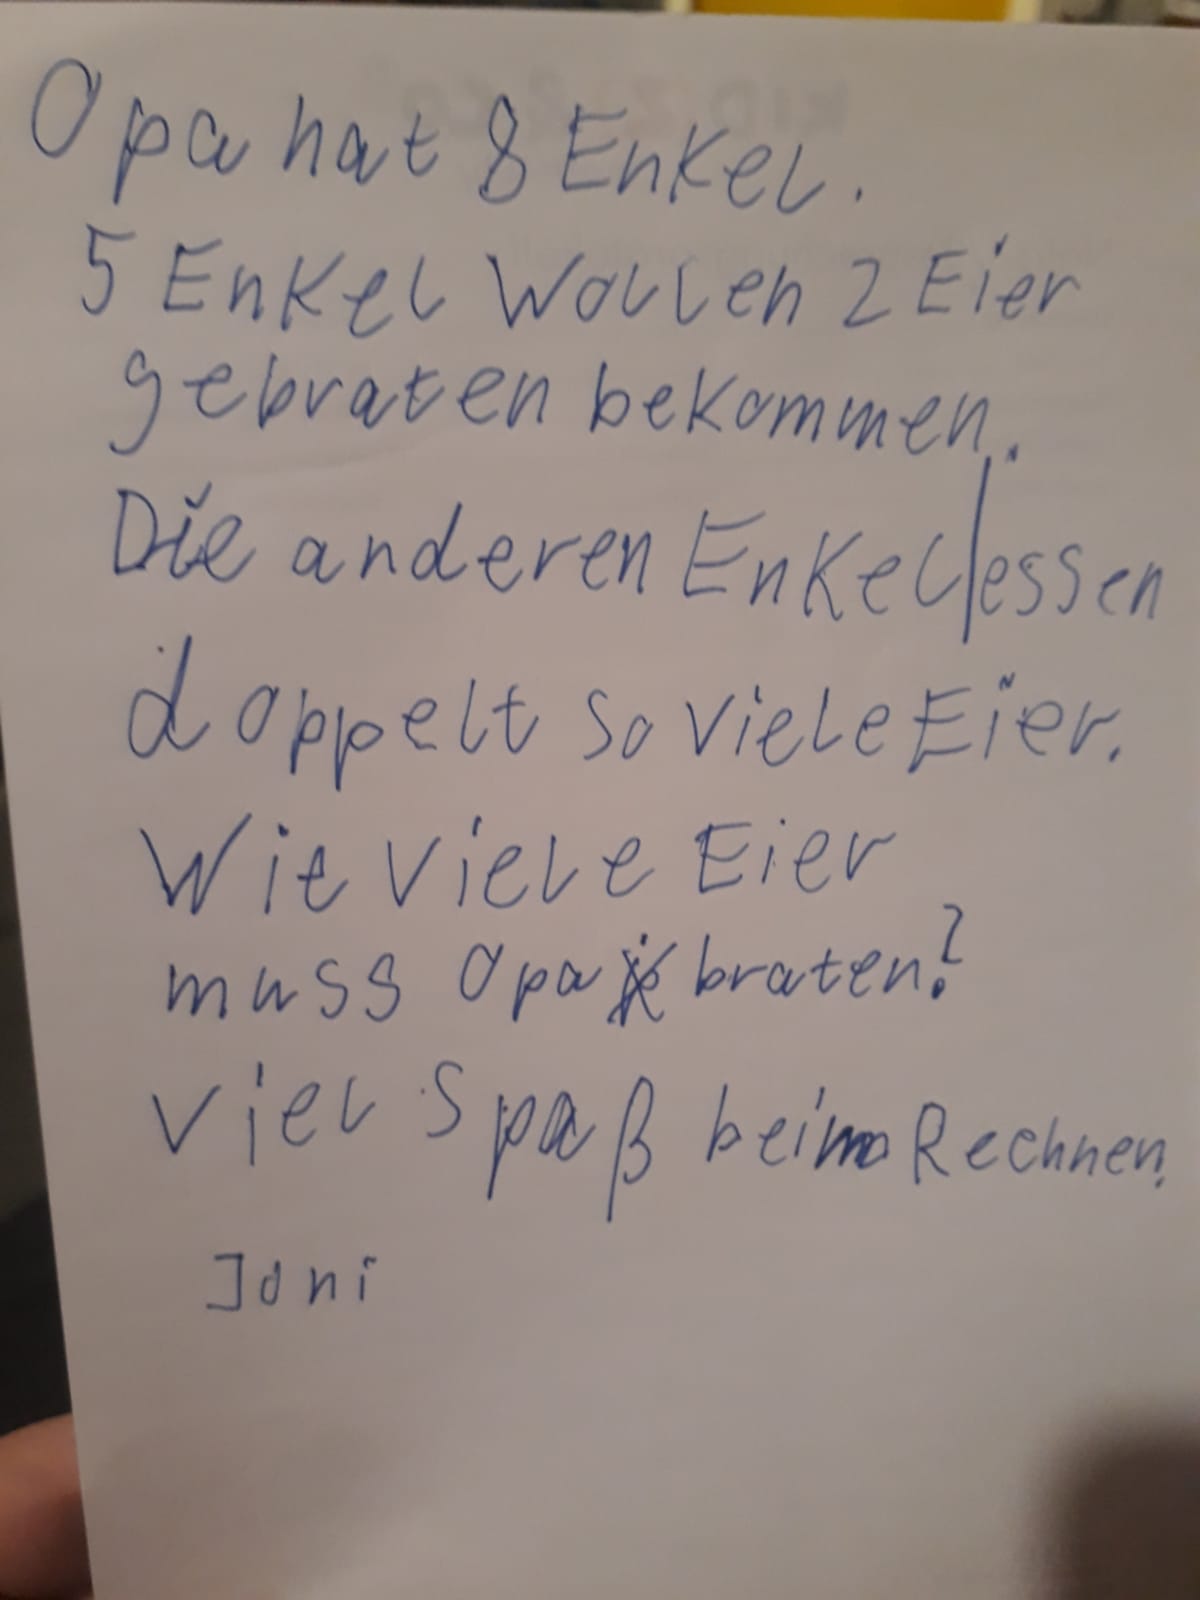 Opa hat 8 Enkel.
5 Enkel wollen 2 Eier
gebraten bekommen.
Die anderen Enkel essen
doppelt so viele Eier.
Wie viele Eier
muss Opa braten?
Viel Spaß beim Rechnen.
Joni